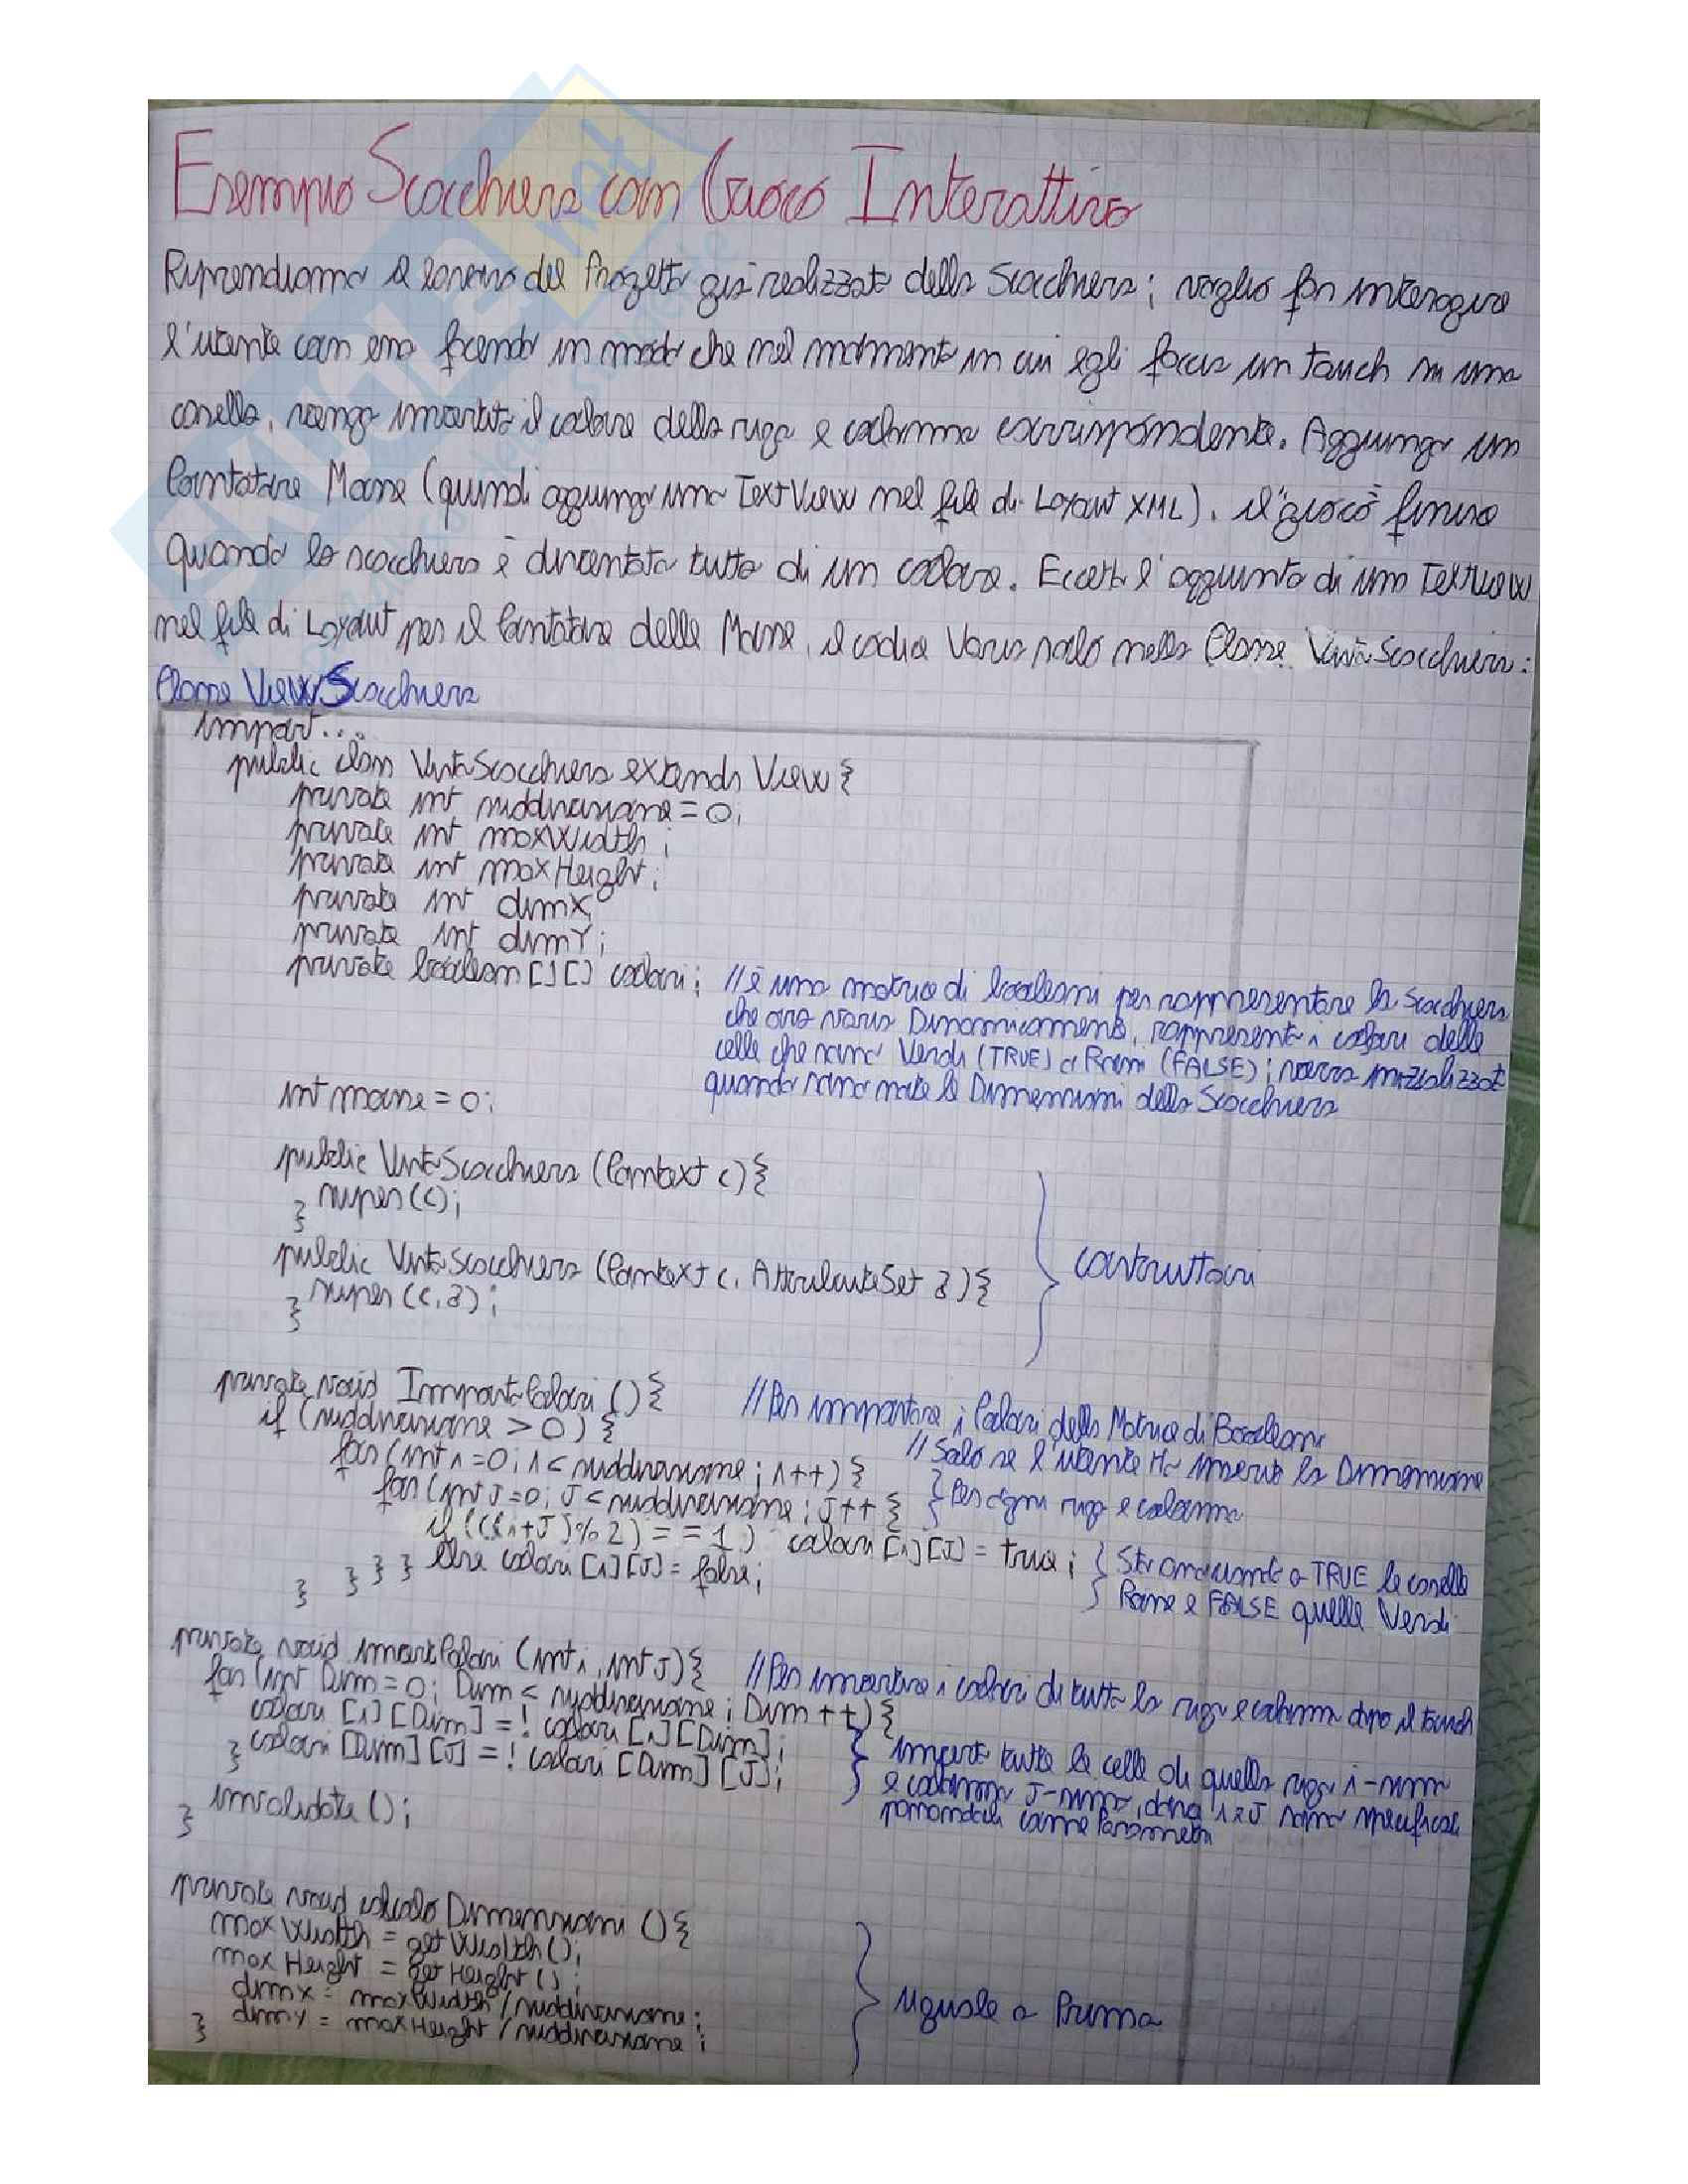 Esempio Scacchiera con Gioco Interattivo
Riprendiamo il lavoro del Progetto già realizzato della Scacchiera; voglio far interagire
l'utente con essa facendo in modo che nel momento in cui egli faccia un touch su una
casella, venga invertito il colore della riga e colonna corrispondente. Aggiungo un
Contatore Mosse (quindi aggiungo una TextView nel file di Layout XML). il "gioco" finisce
quando la scacchiera è diventata tutta di un colore. Eccetto l'aggiunta di una TextView
nel file di Layout per il Contatore delle Mosse, il codice Varia solo nella Classe VistaScacchiera:
Classe ViewScacchiera
import...
public class VistaScacchiera extends View {
private int suddivisione = 0;
private int maxWidth;
private int maxHeight;
private int dimX;
private int dimY;
private boolean [][] colori; // è una matrice di booleani per rappresentare la Scacchiera
che ora varia Dinamicamente, rappresenta i colori delle
celle che sono Verdi (TRUE) o Rossi (FALSE);
quando sono note le Dimensioni della Scacchiera
int mosse = 0;
public VistaScacchiera (Context c) {
super(c);
}
public VistaScacchiera (Context c, AttributeSet a) {
super(c,a);
}
costruttori
private void ImpostaColori () { // Per impostare i Colori della Matrice di Booleani
if (suddivisione > 0) { // Solo se l'utente Ha inserito la Dimensione
for (int i=0; i< suddivisione; i++) {
for (int J=0; J< suddivisione; J++ { } Per ogni riga e colonna
if (((i+J)%2) == 1) colori [i][J] = true; } Sto assegnando a TRUE le caselle
else colori [i][J] = false; Rosse e FALSE quelle Verdi
} } }
}
private void invertiColori (int i, int J) { // Per invertire i colori di tutta la riga e colonna dopo il touch
for (int Dim = 0; Dim < suddivisione; Dim ++) {
colori [i][Dim] = ! colori [i][Dim];
colori [Dim][J] = ! colori [Dim][J];
}
inverto tutte le celle di quella riga i-esima
e colonna J-esima, dove i e J sono specificati
passandoli come Parametri
invalidate ();
}
private void calcolaDimensioni () {
maxWidth = getWidth();
maxHeight = getHeight();
dimX = maxWidth / suddivisione;
dimY = maxHeight / suddivisione;
}
Uguale a Prima